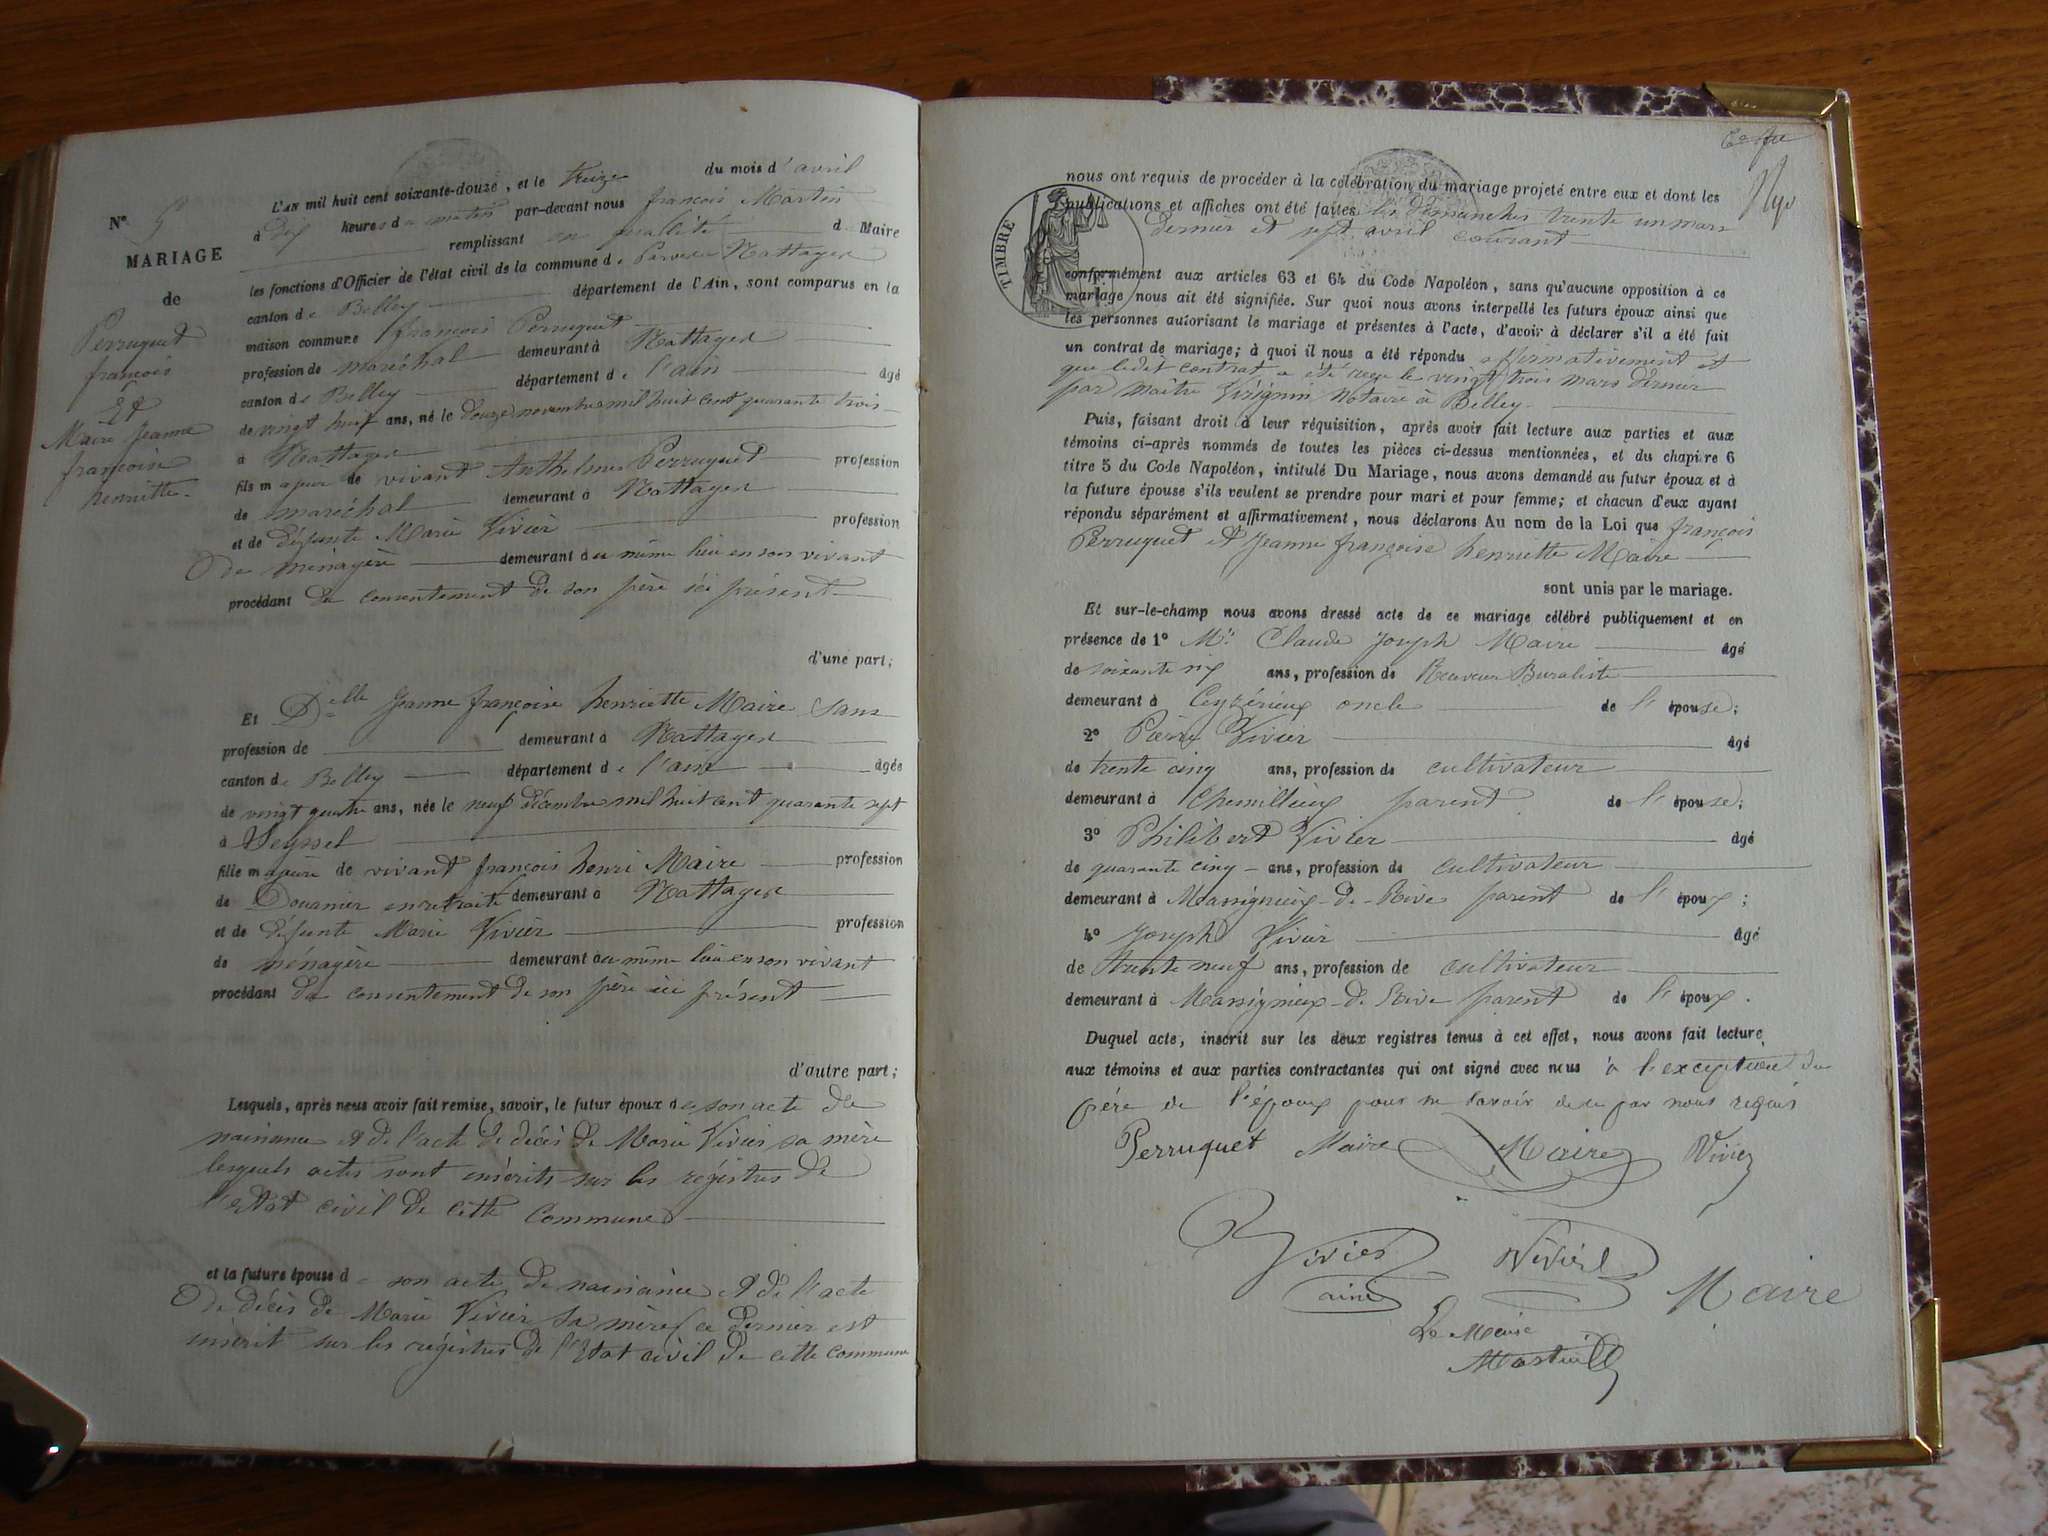 L'AN mil huit cent soixante-douze, et le treize du mois d'avril
à dix heures du matin par-devant nous françois Martin
remplissant en qualité de Maire
les fonctions d'Officier de l'état civil de la commune de Parves Nattages
canton de Belley département de l'Ain, sont comparus en la
maison commune françois Perruquet
profession de maréchal demeurant à Nattages
canton de Belley département de l'ain âgé
de vingt huit ans, né le douze novembre mil huit cent quarante trois
à Nattages
fils majeur de vivant Anthelme Perruquet profession
de maréchal demeurant à Nattages
et de défunte Marie Vivier profession
de ménagère demeurant au même lieu en son vivant
procédant du consentement de son père ici présent
d'une part;
Et Delle Jeanne françoise henriette Maire sans
profession de demeurant à Nattages
canton de Belley département de l'ain âgée
de vingt quatre ans, née le neuf décembre mil huit cent quarante sept
à Seyssel
fille majeure de vivant françois henri Maire profession
de Douanier en retraite demeurant à Nattages
et de défunte Marie Vivier profession
de ménagère demeurant au même lieu en son vivant
procédant du consentement de son père ici présent
d'autre part;
Lesquels, après nous avoir fait remise, savoir, le futur époux de son acte de
naissance et de l'acte de décès de Marie Vivier sa mère
lesquels actes sont inscrits sur les régistres de
l'état civil de cette Commune
et la future épouse de son acte de naissance et de l'acte
de décès de Marie Vivier sa mère ce dernier est
inscrit sur les régistres de l'Etat civil de cette commune
N° 5
MARIAGE
de
Perruquet
françois
Et
Maire Jeanne
françoise
henriette.
TIMBRE
nous ont requis de procéder à la célébration du mariage projeté entre eux et dont les
publications et affiches ont été faites les dimanches trente un mars
dernier et sept avril courant
conformément aux articles 63 et 64 du Code Napoléon, sans qu'aucune opposition à ce
mariage nous ait été signifiée. Sur quoi nous avons interpellé les futurs époux ainsi que
les personnes autorisant le mariage et présentes à l'acte, d'avoir à déclarer s'il a été fait
un contrat de mariage; à quoi il nous a été répondu affirmativement et
que ledit contrat a été reçu le vingt trois mars dernier
par Maître Virignin Notaire à Belley.
Puis, faisant droit à leur réquisition, après avoir fait lecture aux parties et aux
témoins ci-après nommés de toutes les pièces ci-dessus mentionnées, et du chapitre 6
titre 5 du Code Napoléon, intitulé Du Mariage, nous avons demandé au futur époux et à
la future épouse s'ils veulent se prendre pour mari et pour femme; et chacun d'eux ayant
répondu séparément et affirmativement, nous déclarons Au nom de la Loi que françois
Perruquet et Jeanne françoise henriette Maire
sont unis par le mariage.
Et sur-le-champ nous avons dressé acte de ce mariage célébré publiquement et en
présence de 1° Mr Claude Joseph Maire âgé
de soixante six ans, profession de Receveur Buraliste
demeurant à Ceyzérieux oncle de l'épouse;
2° Pierre Vivier âgé
de trente cinq ans, profession de cultivateur
demeurant à Chemillieux parent de l'épouse;
3° Philibert Vivier âgé
de quarante cinq ans, profession de cultivateur
demeurant à Massignieux-de-Rives parent de l'époux;
4° Joseph Vivier âgé
de trente neuf ans, profession de cultivateur
demeurant à Massignieux-de-Rive parent de l'époux.
Duquel acte, inscrit sur les deux registres tenus à cet effet, nous avons fait lecture
aux témoins et aux parties contractantes qui ont signé avec nous à l'exception du
père de l'époux pour ne savoir de ce par nous requis
Perruquet Maire Maire Vivier
Vivier Vivier
ainé Maire
Le Maire
Martin